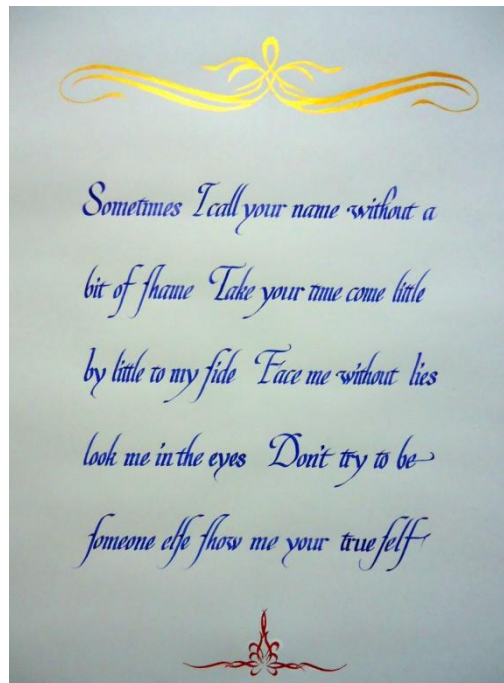 Sometimes I call your name without a
bit of ſhame Take your time come little
by little to my ſide Face me without lies
look me in the eyes Don't try to be
ſomeone elſe ſhow me your true ſelf